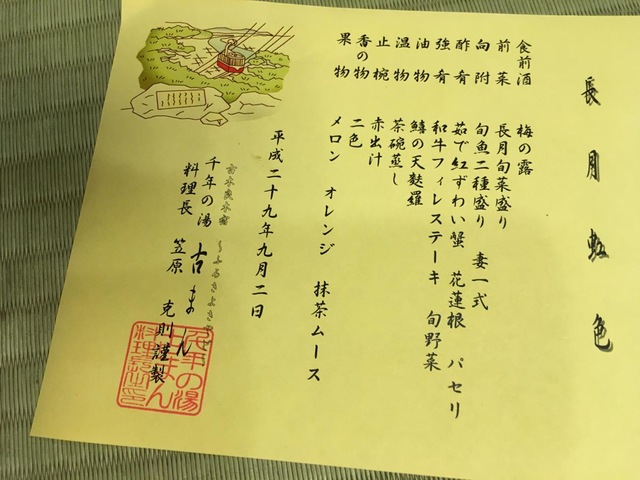 長月虹色
食前酒 梅の露
前菜 長月旬菜盛り
向附 旬魚二種盛り 妻一式
酢肴 茹で紅ずわい蟹 花蓮根 パセリ
強肴 和牛フィレステーキ 旬野菜
油物 鱚の天麩羅
温物 茶碗蒸し
止椀 赤出汁
香の物 二色
果物 メロン オレンジ 抹茶ムース
平成二十九年九月二日
千年の湯 古まん
料理長 笠原 克則謹製